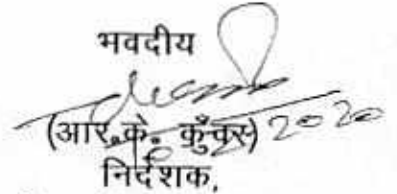 भवदीय
(आर.के. कुँवर) 2020
निदेशक,